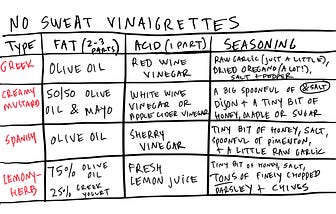 NO SWEAT VINAIGRETTES
TYPE FAT (2-3 PARTS) ACID (1 PART) SEASONING
GREEK
OLIVE OIL
RED WINE
VINEGAR
RAW GARLIC (JUST A LITTLE),
DRIED OREGANO (A LOT!),
SALT + PEPPER
CREAMY
MUSTARD
50/50 OLIVE
OIL & MAYO
WHITE WINE
VINEGAR OR
APPLE CIDER VINEGAR
A BIG SPOONFUL OF
DIJON + A TINY BIT OF
HONEY, MAPLE OR SUGAR
& SALT
SPANISH
OLIVE OIL
SHERRY
VINEGAR
TINY BIT OF HONEY, SALT,
SPOONFUL OF PIMENTON,
+ A LITTLE RAW GARLIC
LEMONY-
HERB
75% OLIVE OIL
25% GREEK YOGURT
FRESH
LEMON JUICE
TINY BIT OF HONEY, SALT,
TONS OF FINELY CHOPPED
PARSLEY + CHIVES